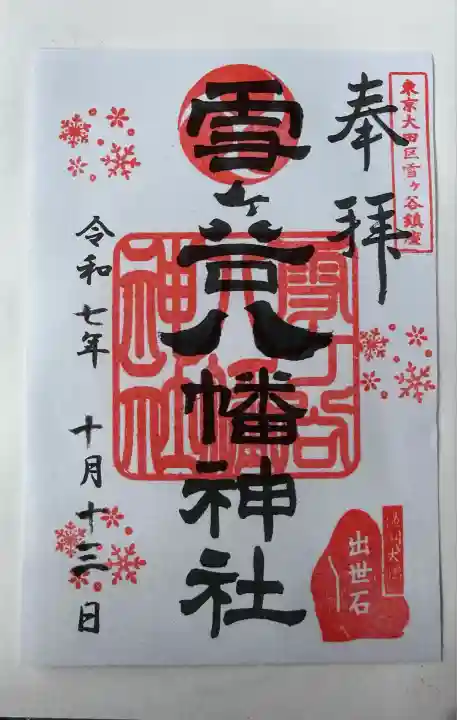 東京大田区雪ヶ谷鎮座
奉拝
雪ヶ谷八幡神社
雪ヶ谷八幡神社
出世石
令和七年 十月十三日